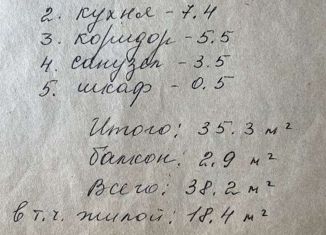 2. кухня - 7.4
3. коридор - 5.5
4. санузел - 3.5
5. шкаф - 0.5
Итого: 35.3 м²
балкон: 2,9 м²
Всего: 38.2 м²
в т.ч. жилой: 18.4 м²